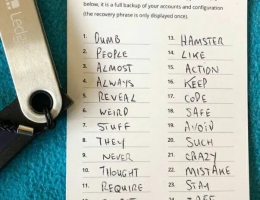 below, it is a full backup of your accounts and configuration
(the recovery phrase is only displayed once).
1. DUMB
2. PEOPLE
3. ALMOST
4. ALWAYS
5. REVEAL
6. WEIRD
7. STUFF
8. THEY
9. NEVER
10. THOUGHT
11. REQUIRE
13. HAMSTER
14. LIKE
15. ACTION
16. KEEP
17. CODE
18. SAFE
19. AVOID
20. SUCH
21. CRAZY
22. MISTAKE
23. STAY
Ledger